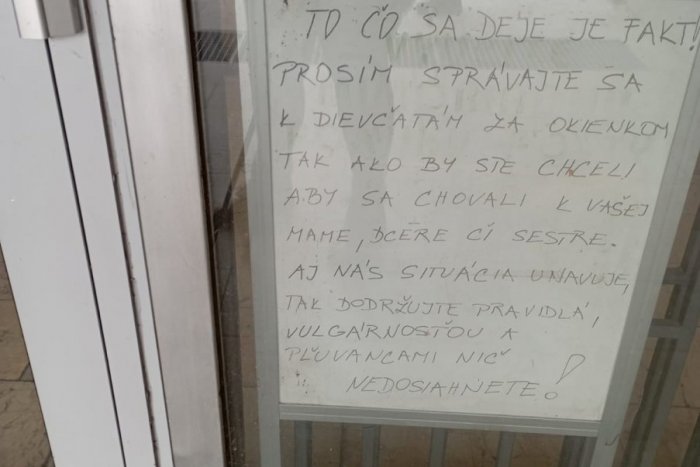 TO ČO SA DEJE JE FAKT!
PROSÍM SPRÁVAJTE SA
K DIEVČATÁM ZA OKIENKOM
TAK AKO BY STE CHCELI
ABY SA CHOVALI K VAŠEJ
MAME, DCÉRE ČI SESTRE.
AJ NÁS SITUÁCIA UNAVUJE,
TAK DODRŽUJTE PRAVIDLÁ,
VULGÁRNOSŤOU A
PĽUVANCAMI NIČ
NEDOSIAHNETE!